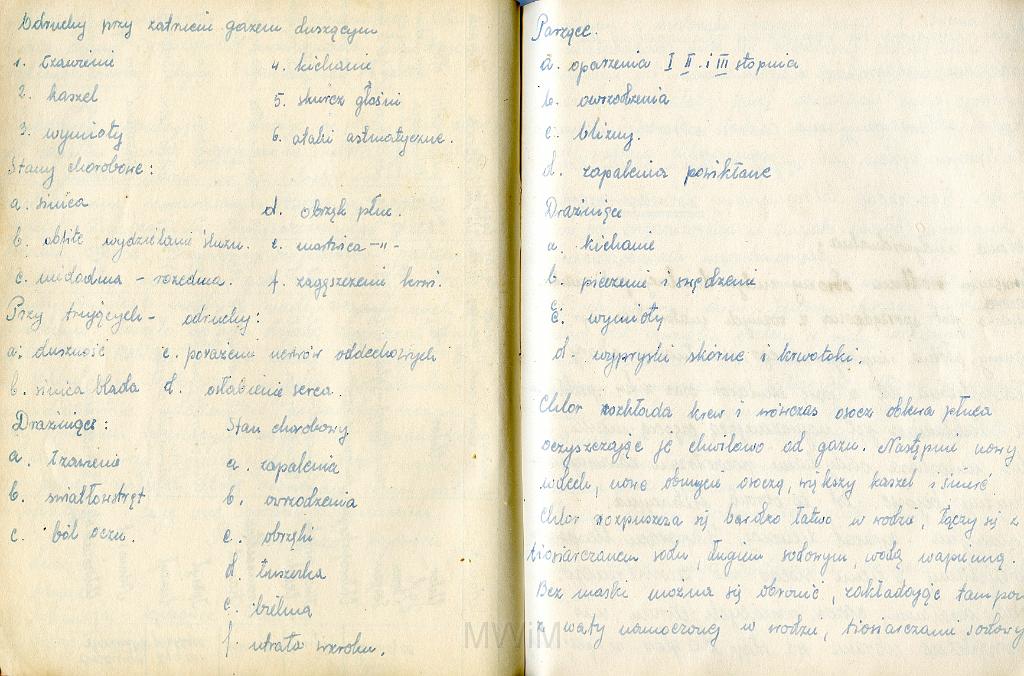 Odruchy przy zatruciu gazem duszącym
1. łzawienie 4. kichanie
2. kaszel 5. skurcz głośni
3. wymioty 6. ataki astmatyczne.
Stany chorobowe:
a. sinica d. obrzęk płuc.
b. obfite wydzielanie śluzu. e. martwica -"-
c. niedodma - rozedma. f. zagęszczenie krwi.
Przy trujących - odruchy:
a. duszność c. porażenie nerwów oddechowych
b. sinica blada d. osłabienie serca.
Drażniące: Stan chorobowy
a. łzawienie a. zapalenia
b. światłowstręt b. owrzodzenia
c. ból oczu. c. obrzęki
d. łuszczka
e. bielma
f. utrata wzroku.
Parzące.
a. oparzenia I II i III stopnia
b. owrzodzenia
c. blizny.
d. zapalenia powikłane
Drażniące
a. kichanie
b. pieczenie i swędzenie
c. wymioty
d. wypryski skórne i krwotoki.
Chlor rozkłada krew i wówczas osocze oblewa płuca
oczyszczając je chwilowo od gazu. Następnie nowy
wdech, nowe obmycie osoczą, większy kaszel i śmierć
Chlor rozpuszcza się bardzo łatwo w wodzie, łączy się z
tiosiarczanem sodu, ługiem sodowym, wodą wapienną.
Bez maski można się obronić, zakładając tampon
z waty namoczonej w wodzie, tiosiarczanie sodowy
MWiM